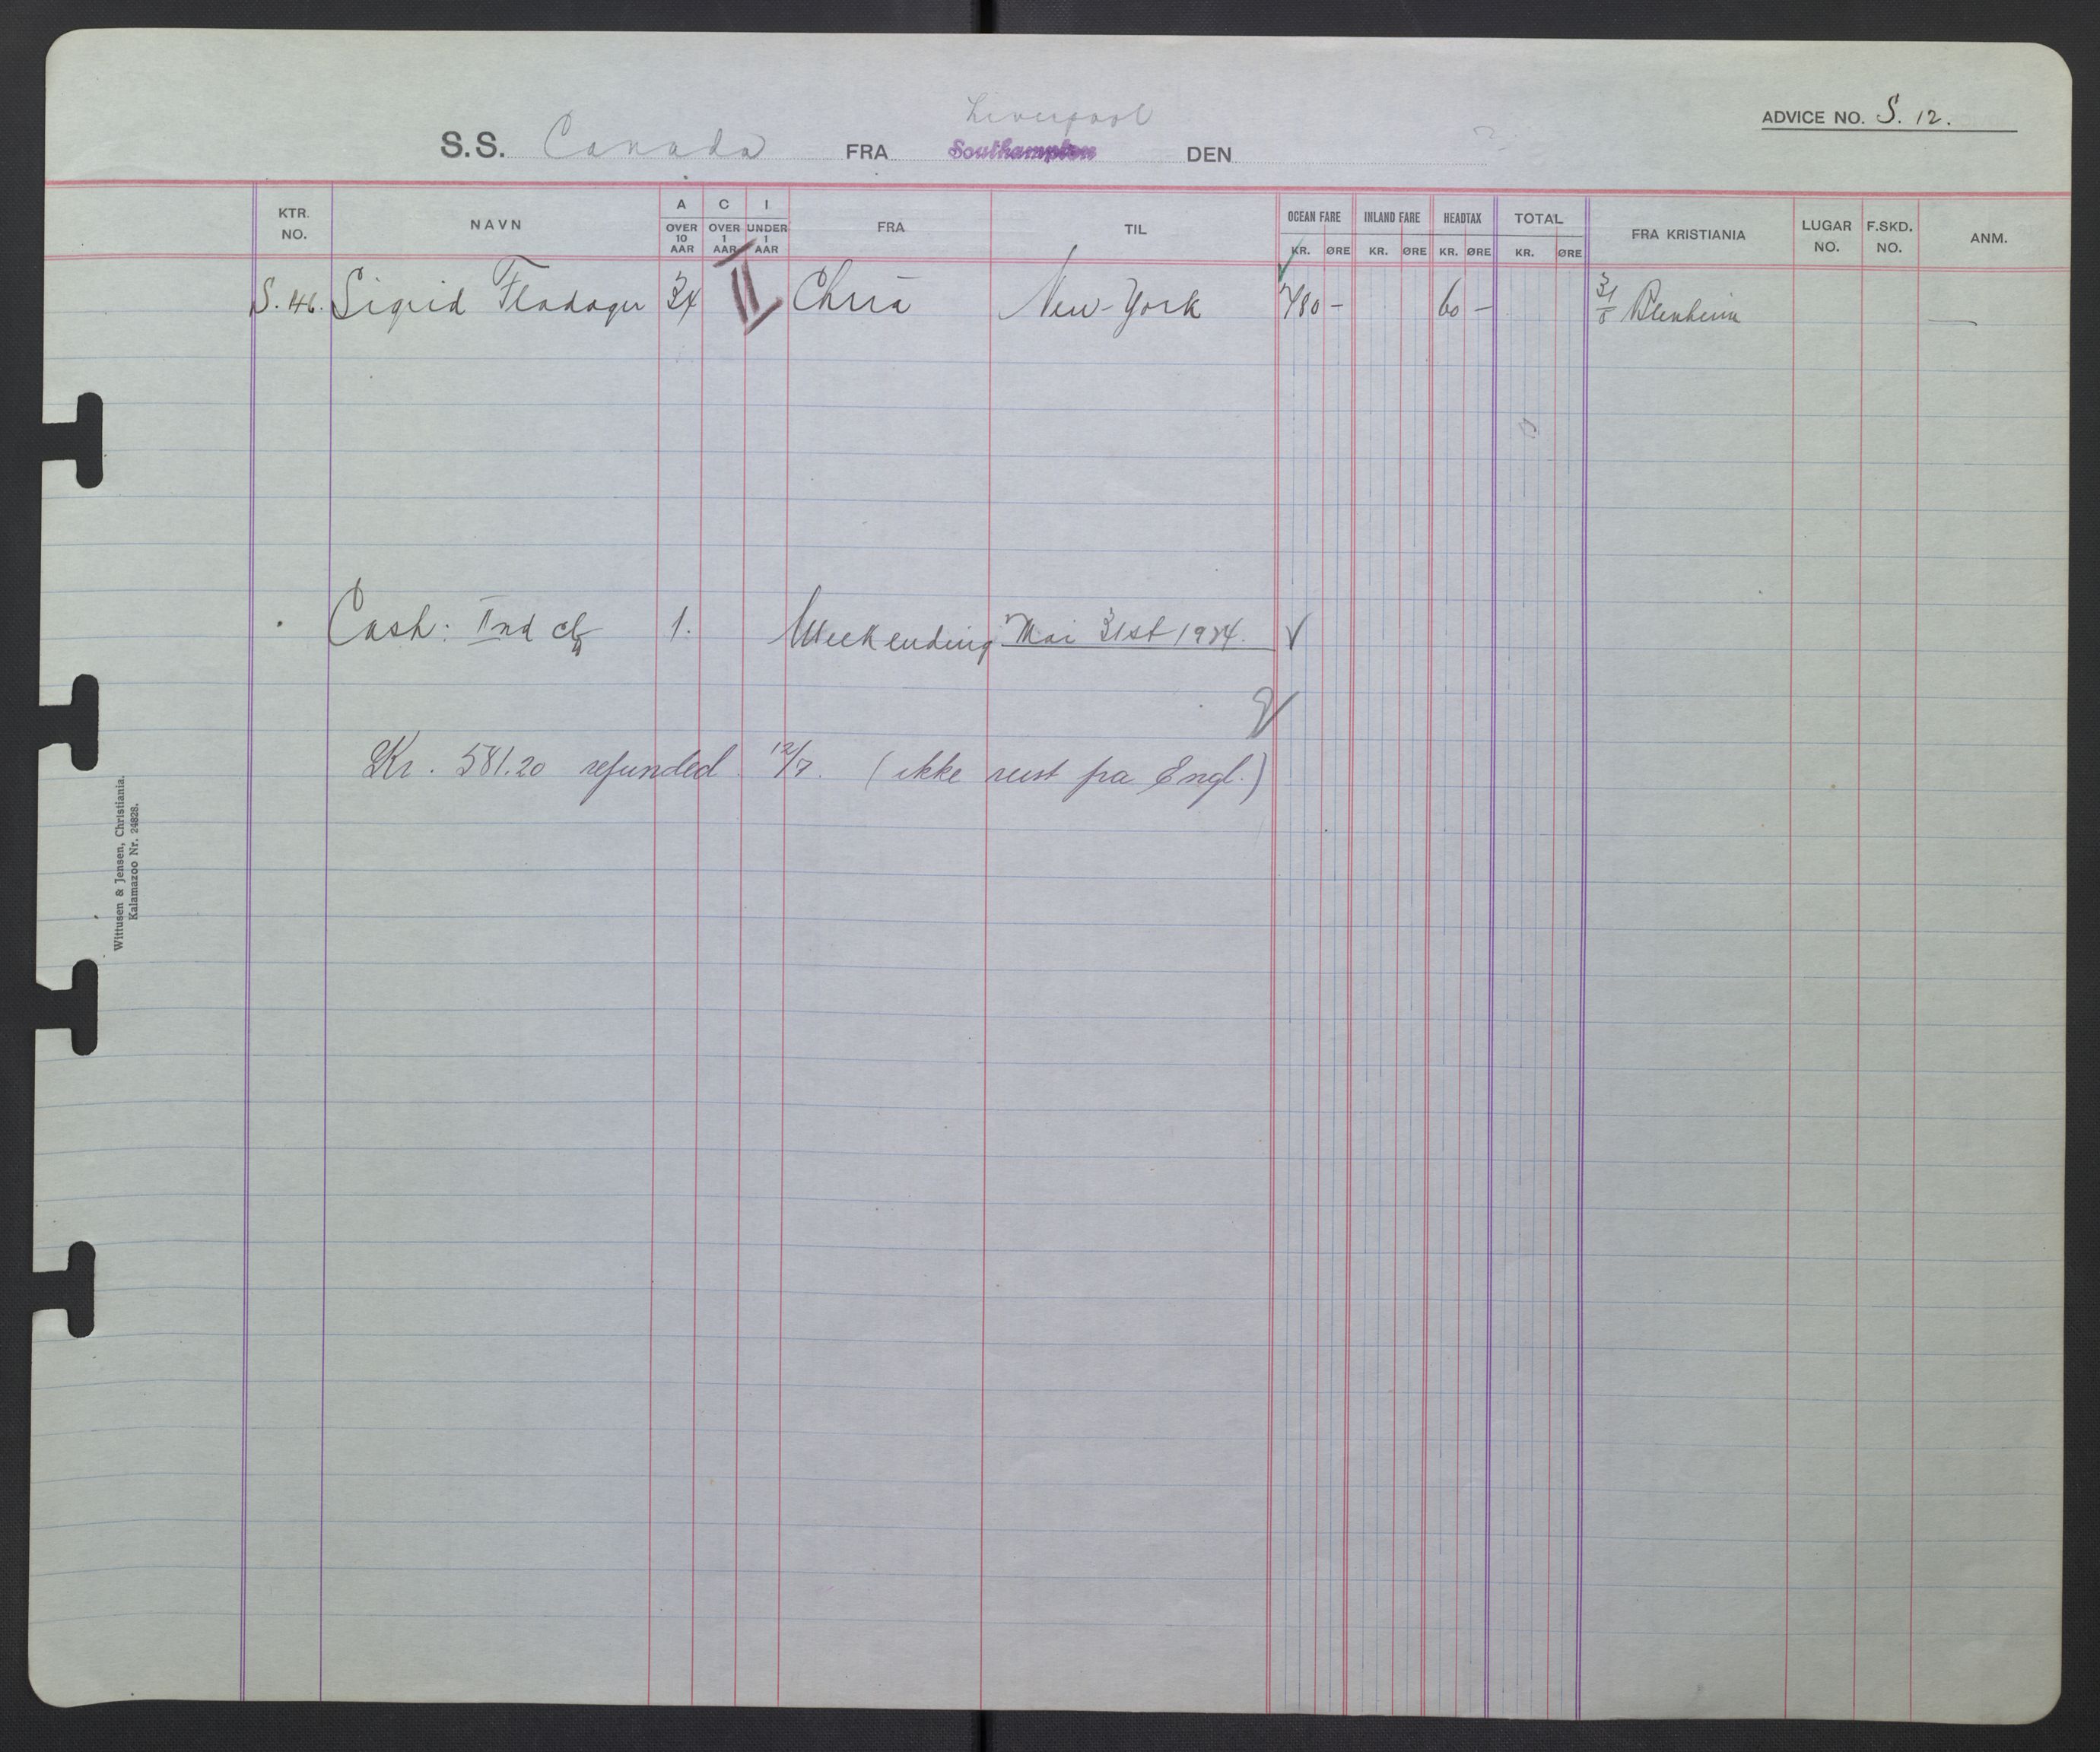 ADVICE NO. S. 12.
Liverpool
S.S. Canada FRA Southampton DEN
KTR. NO. NAVN A OVER 10 AAR C OVER 1 AAR I UNDER 1 AAR FRA TIL OCEAN FARE KR. ØRE INLAND FARE KR. ØRE HEADTAX KR. ØRE TOTAL KR. ØRE FRA KRISTIANIA LUGAR NO. F.SKD. NO. ANM.
S. 146. Sigrid Fladager 34 II Chria New-York 780 - 60 - 31/5 Blenheim —
Cash: IInd cl 1. Weekending Mai 31st 1924.
Kr. 581.20 refunded 12/7. (ikke reist fra Engl.)
Wittusen & Jensen, Christiania.
Kalamazoo Nr. 24828.